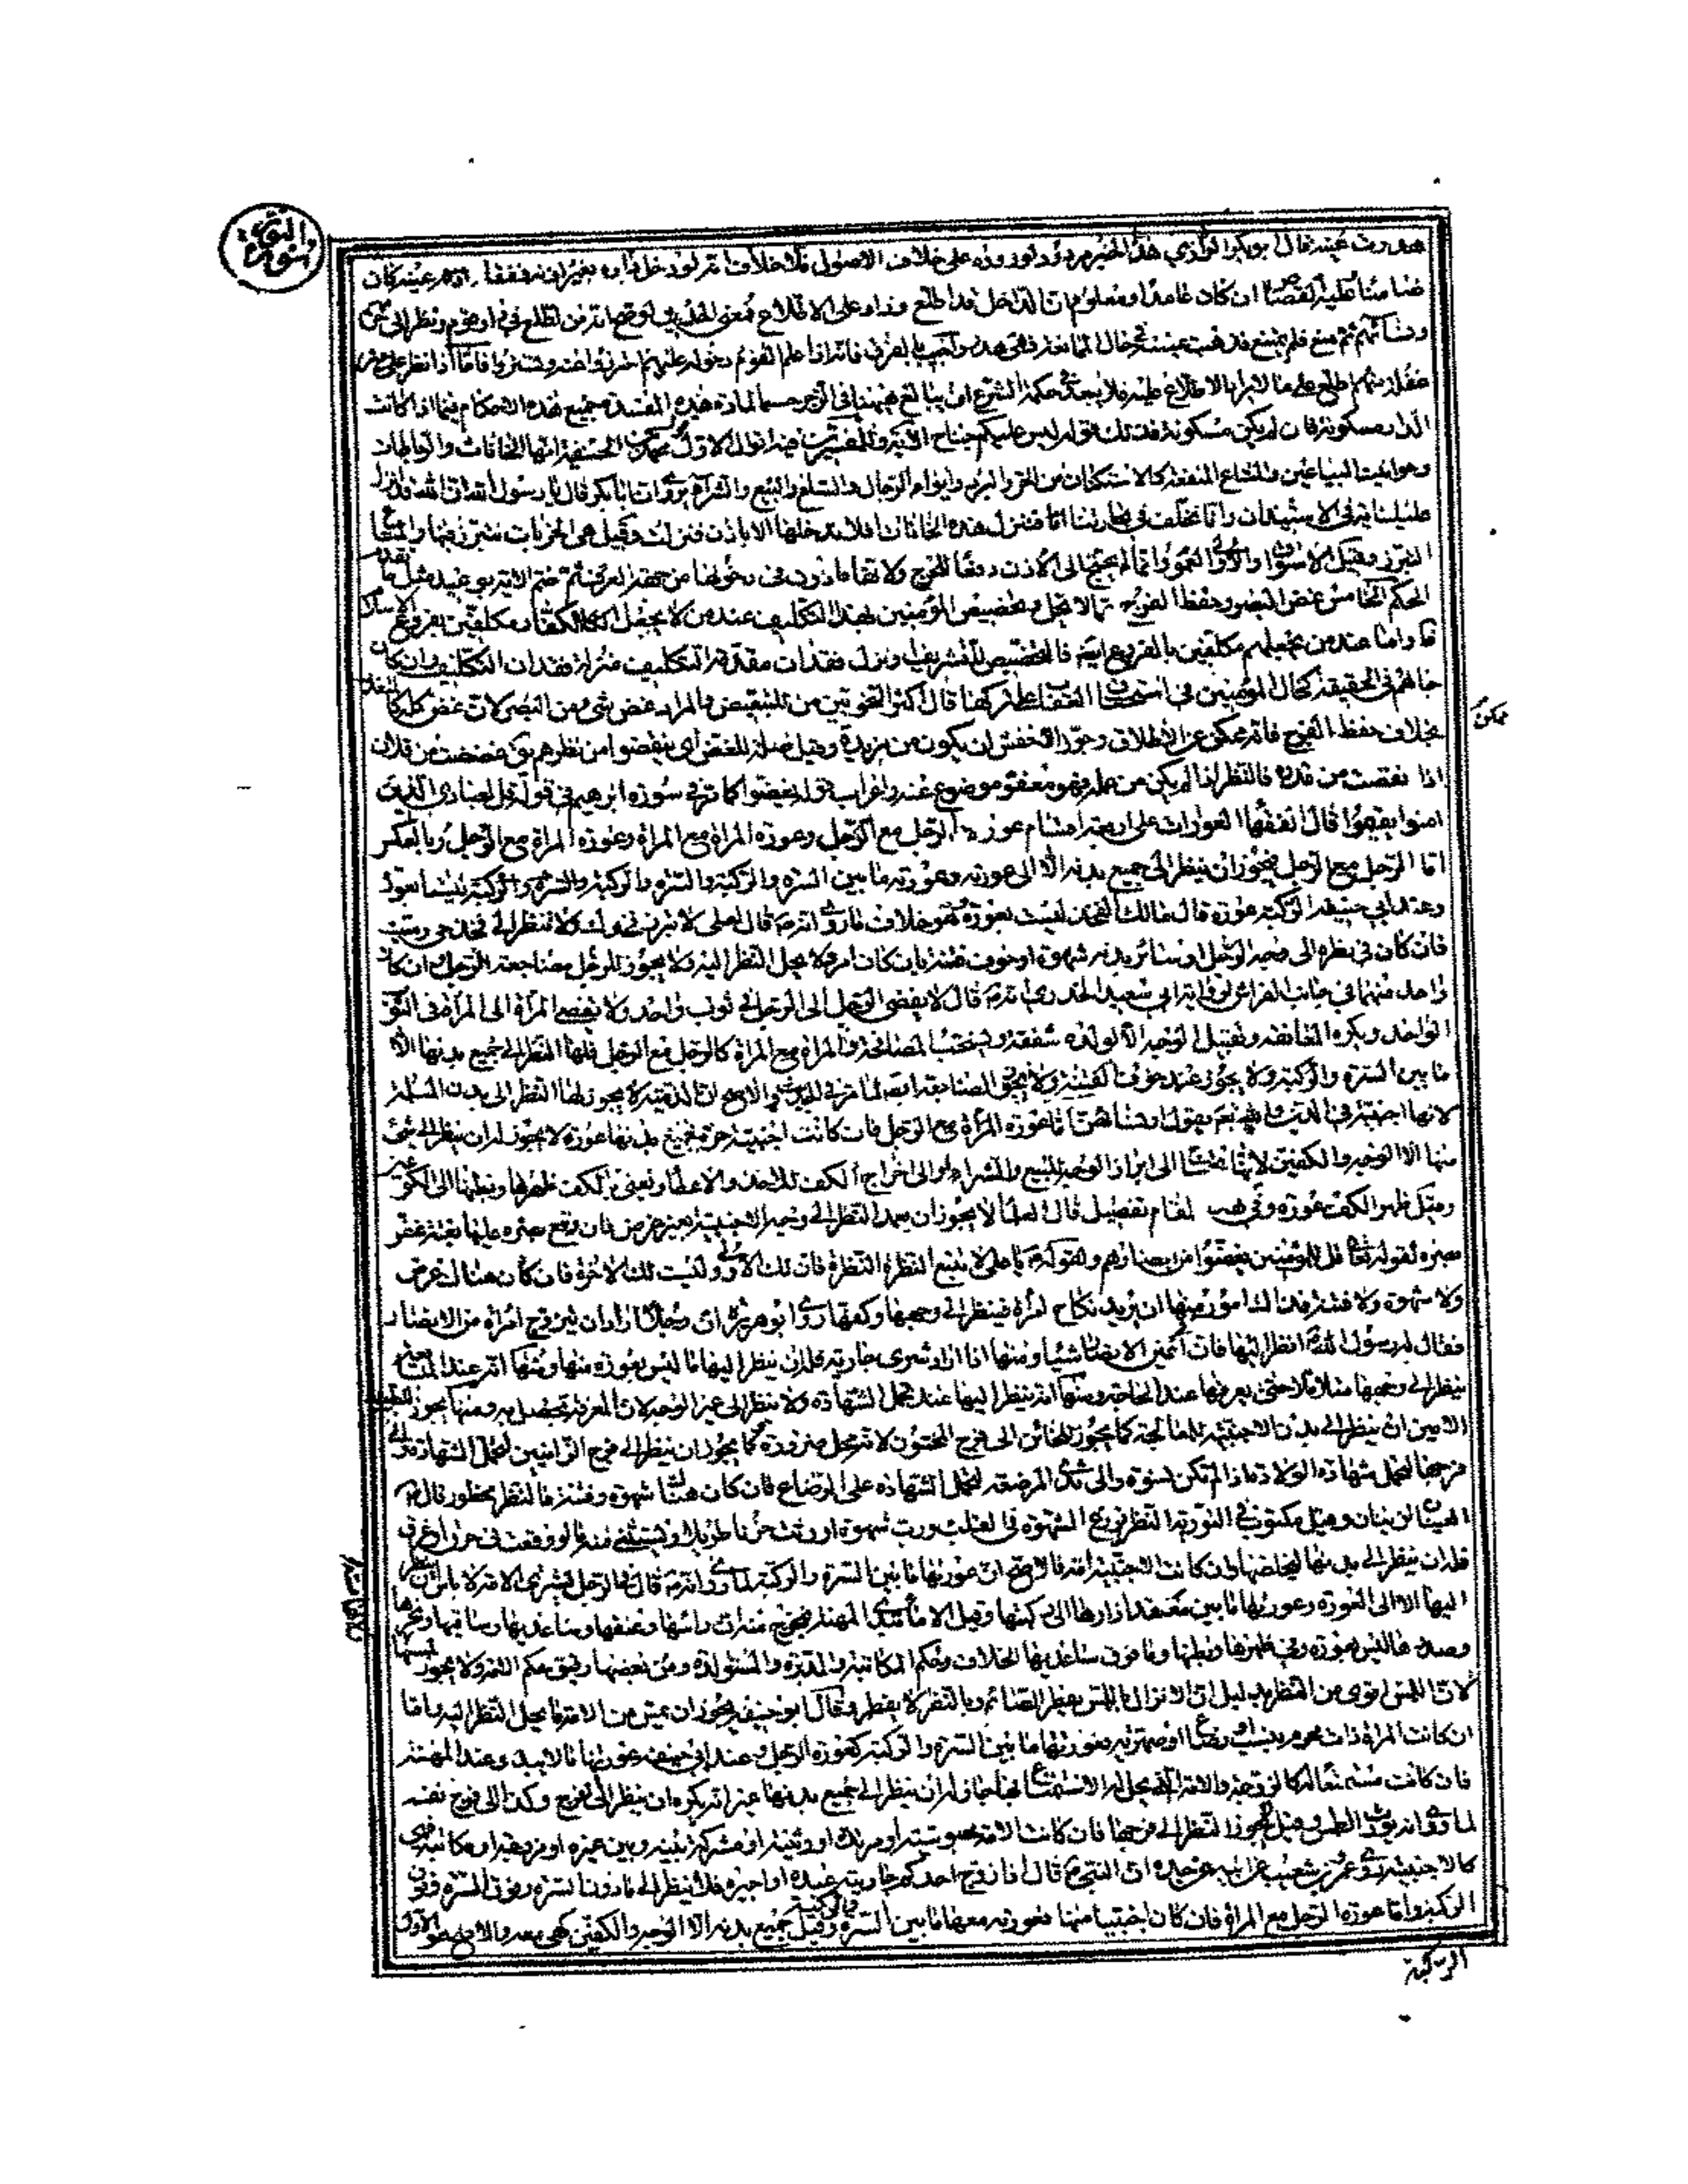 سورة النور
هدرت عينه قال ابو بكر الرازي هذا الخبر مردود لوروده على خلاف الاصول فلا خلاف انه لو دخل داره بغير اذنه ففقأ عينه كان
ضامنا عليه القصاص ان كان عامدا ومعلوم ان الداخل قد اطلع وزاد على الاطلاع فمعنى الحديث لو صح انه فمن اطلع في دار قوم ونظر الى حرمهم
ونسائهم ثم منع فلم يمتنع فذهبت عينه في حال الممانعة فهي هدر واجيب بالفرق فانه اذا علم القوم دخوله عليهم احترزوا عنه وتستروا فاما اذا نظر على حين
غفلة منهم اطلع على ما لا يراد الاطلاع عليه فلا يبعد في حكمة الشرع ان يبالغ ههنا في الزجر حسما لمادة هذه المفسدة جميع هذه الاحكام فيما اذا كانت
الدار مسكونة فان لم يكن مسكونة فذلك قوله ليس عليكم جناح الآية وللمفسرين فيه اقوال الاول قول محمد بن الحنفية انها الخانات والرباطات
وحوانيت البياعين والمتاع المنفعة كالاستكنان من الحر والبرد وايواء الرجال والسلع والبيع والشراء يروى ان ابا بكر قال يا رسول الله ان الله قد انزل
عليك آية في الاستيذان وانا نختلف في تجارتنا فننزل هذه الخانات افلا ندخلها الا باذن فنزلت وقيل هي الخربات يتبرز فيها والمتاع
التبرز وقيل الاسواق والاولى العموم وانما لم يحتج الى الاذن دفعا للحرج ولانها ماذون في دخولها من جهة العرف ثم ختم الآية بوعيد مثل ما تقدم
الحكم الخامس غض البصر وحفظ الفرج عما لا يحل وتخصيص المؤمنين بهذا التكليف عند من لا يجعل الكفار مكلفين بفروع الاسلام
ظاهر واما عند من يجعلهم مكلفين بالفروع ايضا فالتخصيص للتشريف ونزل فقدان مقدمة التكليف منزلة فقدان التكليف وان كان
حالهم في الحقيقة كحال المؤمنين في استحقاق العقاب على تركها قال اكثر النحويين من للتبعيض والمراد غض شيء من البصر لان غض كله كالمتعذر
بخلاف حفظ الفرج فانه ممكن على الاطلاق وجوز الاخفش ان يكون من مزيدة وقيل صلة للغض اي ينقصوا من نظرهم يقال غضضت من فلان
ممكن
اذا نقصت من قدره فالنظر اذا لم يكن من عمله فهو معفو موضوع عنه واعراب قوله يغضوا كما مر في سورة ابرهيم في قوله قل لعبادي الذين
امنوا يقيموا قال الفقهاء العورات على اربعة اقسام عورة الرجل مع الرجل وعورة المراة مع المراة وعورة المراة مع الرجل وبالعكس
اما الرجل مع الرجل فيجوز ان ينظر الى جميع بدنه الا الى عورته وعورته ما بين السرة والركبة والسرة والركبة ليستا بعورة
وعند ابي حنيفة الركبة عورة قال مالك الفخذ ليست بعورة وهو خلاف ما روي انه قال لعلي لا تبرز فخذك ولا تنظر الى فخذ حي وميت
فان كان في نظره الى وجه الرجل او سائر بدنه شهوة او خوف فتنة بان كان امرد لا يحل النظر اليه ولا يجوز للرجل مضاجعة الرجل وان كان
واحد منهما في جانب الفراش لرواية ابي سعيد الخدري انه قال لا يفضي الرجل الى الرجل في ثوب واحد ولا تفضي المراة الى المراة في الثوب
الواحد ويكره المعانقة وتقبيل الوجه الا لولده شفقة وتستحب المصافحة والمراة مع المراة كالرجل مع الرجل فلها النظر الى جميع بدنها الا
ما بين السرة والركبة ولا يجوز عند خوف الفتنة ولا يجوز المضاجعة ايضا لما مر في الحديث والاصح ان الذمية لا يجوز لها النظر الى بدن المسلمة
لانها اجنبية في الدين والله تعم يقول او نسائهن اما عورة المراة مع الرجل فان كانت اجنبية حرة فجميع بدنها عورة لا يجوز له ان ينظر الى شيء
منها الا الوجه والكفين لانها تحتاج الى ابراز الوجه للبيع والشراء والى اخراج الكف للاخذ والاعطاء ونعني بالكف ظهرها وبطنها الى الكوعين
وقيل ظهر الكف عورة وفي هذا المقام تفصيل قال العلماء لا يجوز ان يعمد النظر الى وجه الاجنبية لغير غرض فان وقع بصره عليها بغتة غض
بصره لقوله تعالى قل للمؤمنين يغضوا من ابصارهم ولقوله يا علي لا تتبع النظرة النظرة فان لك الاولى وليست لك الآخرة فان كان هنالك غرض
ولا شهوة ولا فتنة فذلك امور منها ان يريد نكاح امرأة فينظر الى وجهها وكفيها روى ابو هريرة ان رجلا اراد ان يتزوج امرأة من الانصار
فقال له رسول الله انظر اليها فان في اعين الانصار شيئا ومنها اذا اراد شرى جارية فله ان ينظر اليها ما ليس بعورة منها ومنها انه عند المبايعة
ينظر الى وجهها متاملا حتى يعرفها عند الحاجة ومنها انه ينظر اليها عند تحمل الشهادة ولا ينظر الى غير الوجه لان المعرفة تحصل به ومنها يجوز للطبيب
الامين ان ينظر الى بدن الاجنبية للمعالجة كما يجوز للخاتن الى فرج المختون لانه محل ضرورة كما يجوز ان ينظر الى فرج الزانيين لتحمل الشهادة والى
فرجها لتحمل شهادة الولادة اذا لم تكن نسوة والى ثدي المرضعة لتحمل الشهادة على الرضاع فان كان هنالك شهوة وفتنة فالنظر محظور قال
العينان تزنيان وقيل مكتوب في التورية النظر يزرع الشهوة في القلب ورب شهوة اورثت حزنا طويلا ويستثنى منه ما لو وقعت في حرق او غرق
فله ان ينظر الى بدنها ليخلصها وان كانت الاجنبية امة فالاصح ان عورتها ما بين السرة والركبة لما روي انه قال في الرجل يشتري الامة لا باس ان ينظر
اليها الا الى العورة وعورتها ما بين معقد ازارها الى ركبتها وقيل الا ما تبدي المهنة فيخرج منه ان راسها وعنقها وساعديها وساقيها ونحرها
وصدرها ليس بعورة وفي ظهرها وبطنها وما فوق ساعديها الخلاف وحكم المكاتبة والمدبرة والمستولدة ومن بعضها رقيق حكم الامة ولا يجوز لمسها
لان اللمس اقوى من النظر بدليل ان الانزال باللمس يفطر الصائم وبالنظر لا يفطر وقال ابو حنيفة يجوز ان يمس من الامة ما يحل النظر اليه اما
ان كانت المراة ذات محرم بنسب او رضاع او صهرية فعورتها ما بين السرة والركبة كعورة الرجل وعند ابي حنيفة عورتها ما لا يبدو عند المهنة
فان كانت مستمتعا له كالزوجة والامة التي يحل له الاستمتاع بها جاز له ان ينظر الى جميع بدنها غير انه يكره ان ينظر الى الفرج وكذا الى فرج نفسه
لما روي انه يورث الطمس وقيل لا يجوز النظر الى فرجها فان كانت الامة مجوسية او مرتدة او وثنية او مشتركة بينه وبين غيره او مزوجة او مكاتبة فهي
كالاجنبية روى عمرو بن شعيب عن ابيه عن جده ان النبي قال اذا زوج احدكم جاريته عبده او اجيره فلا ينظر الى ما دون السرة وفوق
الركبة واما عورة الرجل مع المراة فان كان اجنبيا منها فعورته معها ما بين السرة والركبة وقيل جميع بدنه الا الوجه والكفين كهي معه والاصح هو الاول